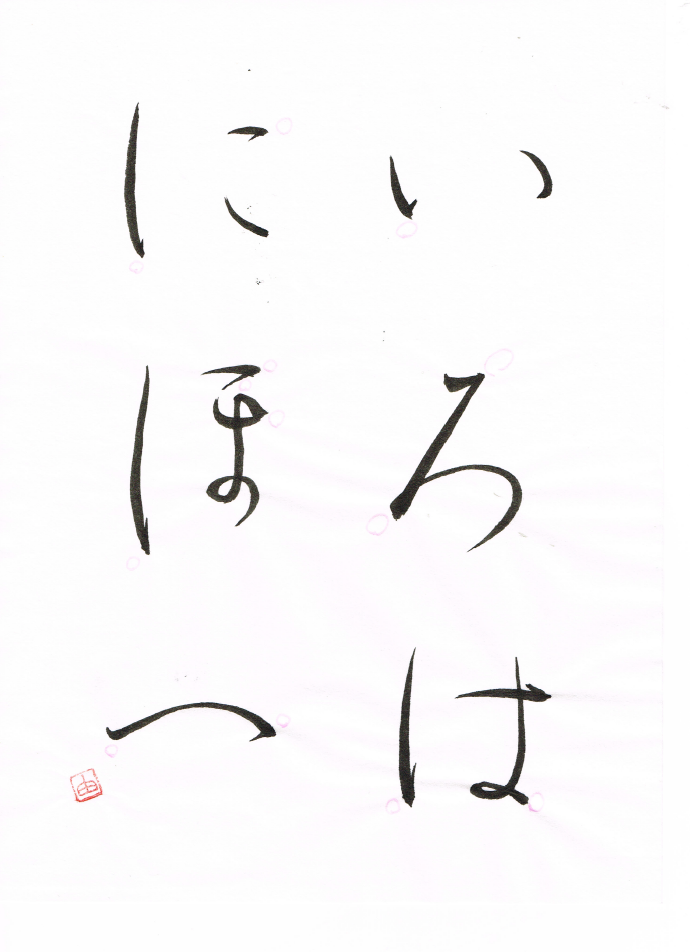 いろは
にほへ